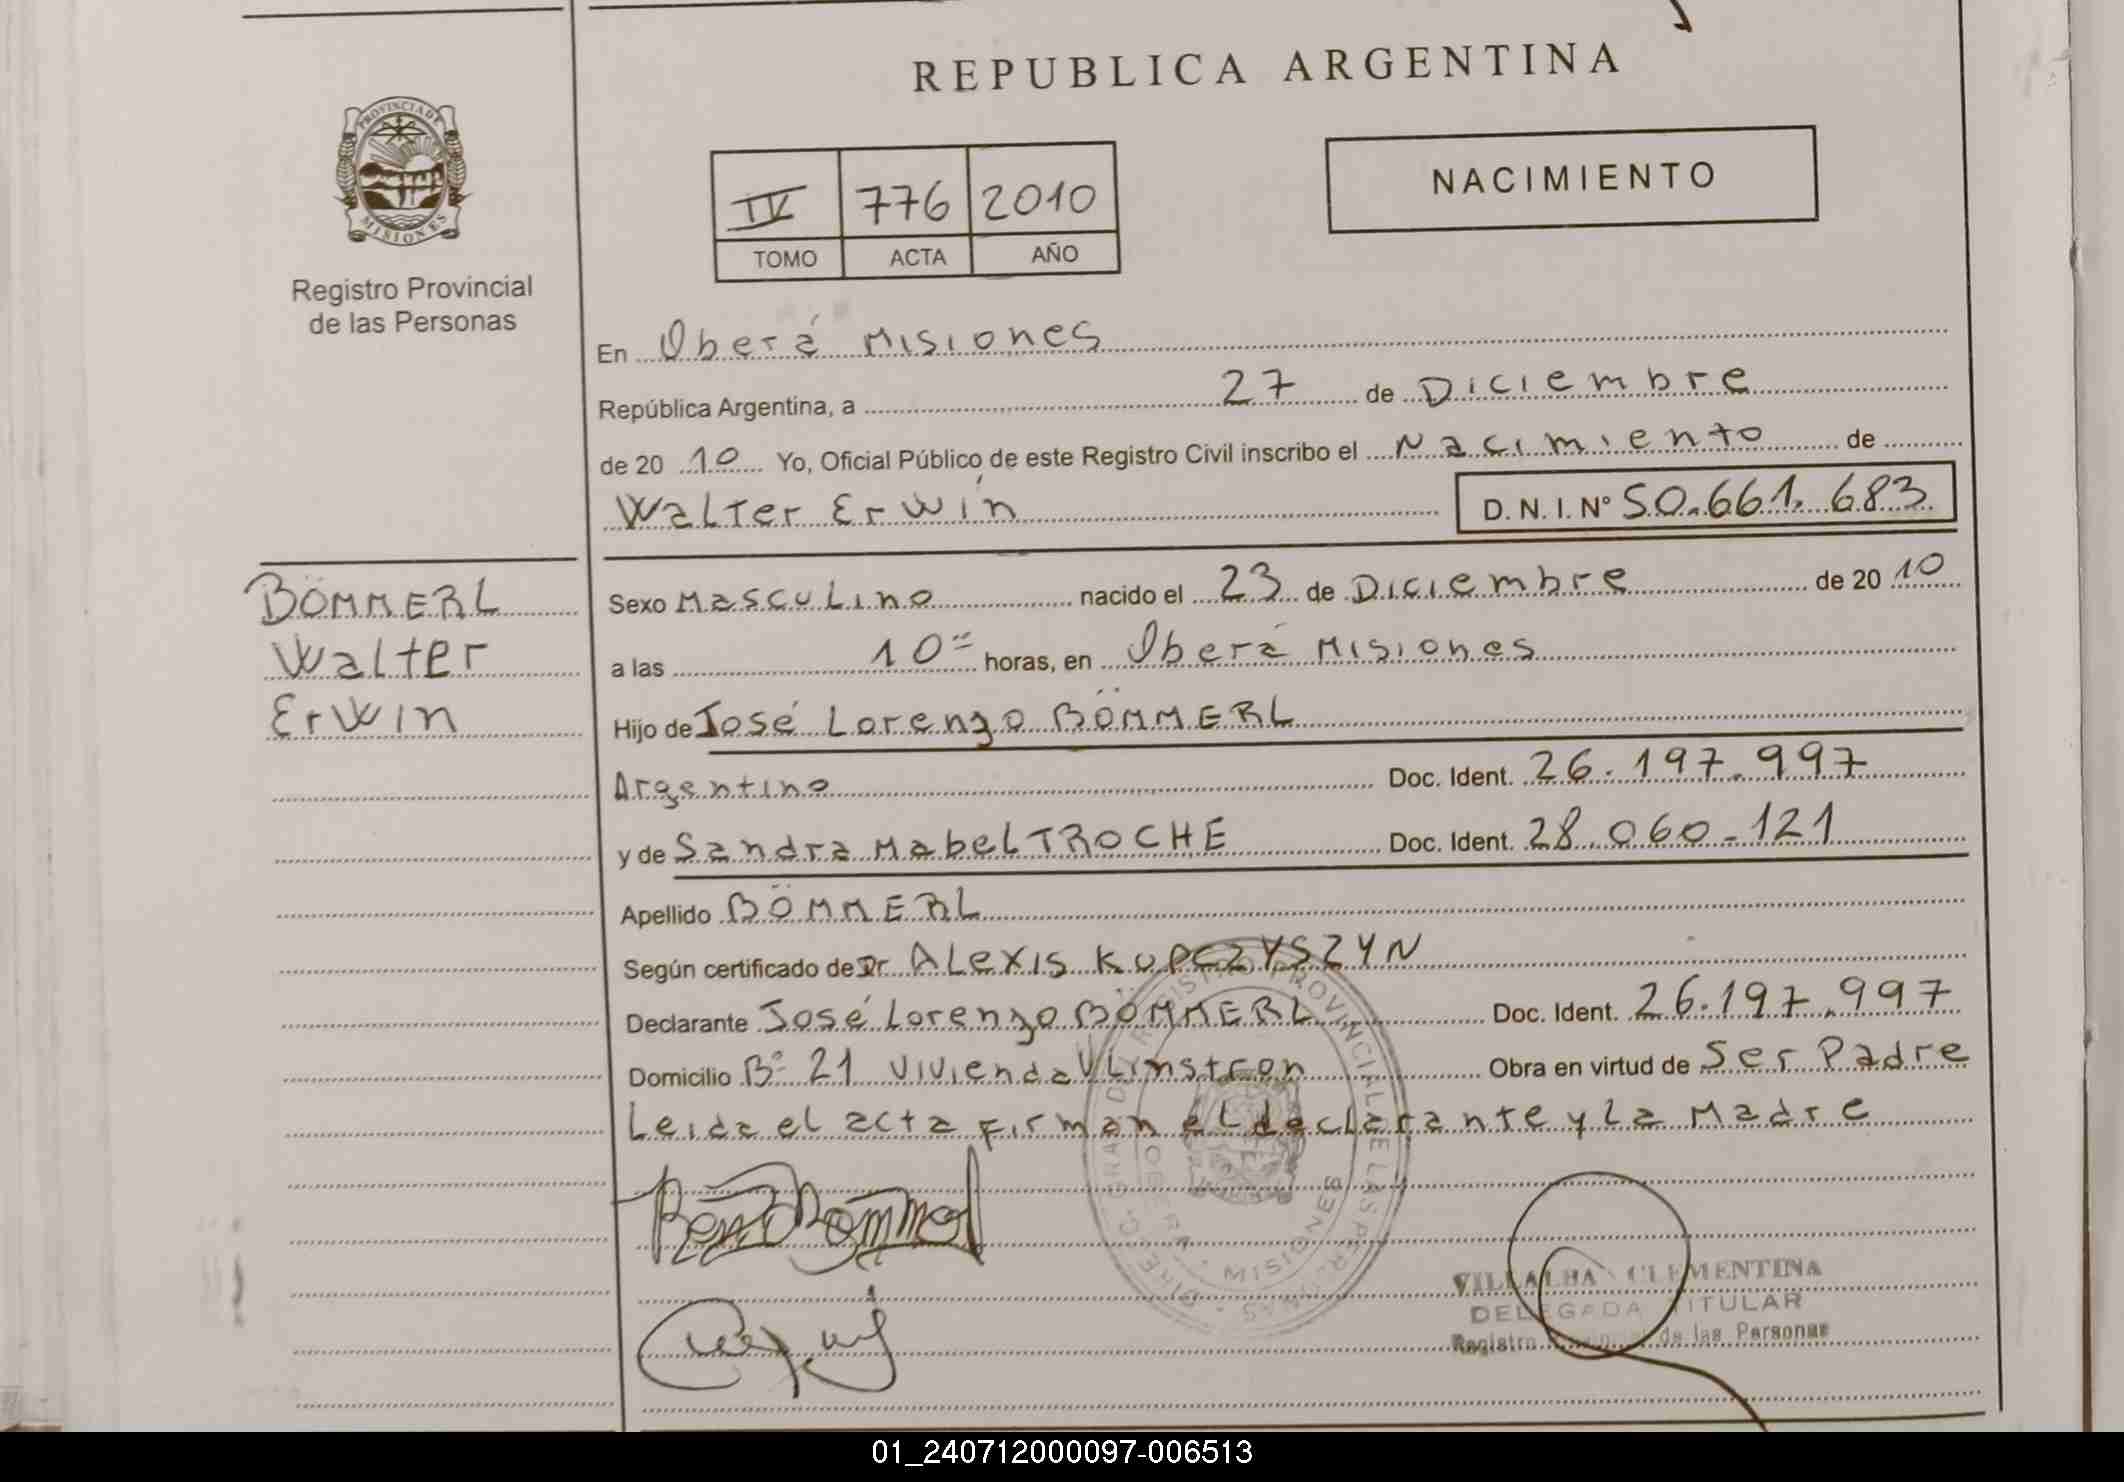 REPUBLICA ARGENTINA
PROVINCIA DE
MISIONES
Registro Provincial
de las Personas
IV 776 2010
TOMO ACTA AÑO
NACIMIENTO
En Oberá Misiones
República Argentina, a 27 de Diciembre
de 20 10 Yo, Oficial Público de este Registro Civil inscribo el Nacimiento de
Walter Erwin D.N.I.Nº 50.661.683
BÖMMERL
Walter
Erwin
Sexo Masculino nacido el 23 de Diciembre de 20 10
a las 10 horas, en Oberá Misiones
Hijo de José Lorenzo BÖMMERL
Argentino Doc. Ident. 26.197.997
y de Sandra Mabel TROCHE Doc. Ident. 28.060.121
Apellido BÖMMERL
Según certificado de Dr. ALEXIS KUPCZYSZYN
Declarante José Lorenzo BÖMMERL Doc. Ident. 26.197.997
Domicilio Bº 21 Vivienda V. Linstron Obra en virtud de Ser Padre
Leida el acta firman el declarante y la Madre
VILLALBA CLEMENTINA
DELEGADA TITULAR
Registro Provincial de las Personas
MISIONES
01_240712000097-006513